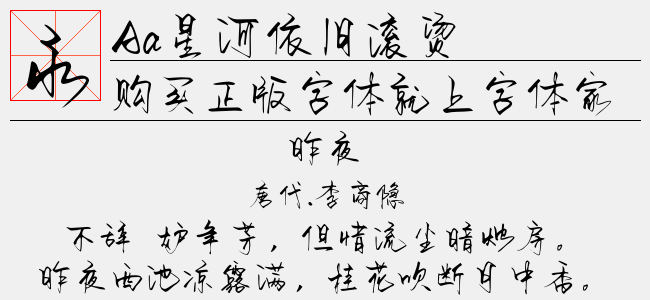 永
Aa星河依旧滚烫
购买正版字体就上字体家
昨夜
唐代.李商隐
不辞 妒年芳，但惜流尘暗烛房。
昨夜西池凉露满，桂花吹断月中香。